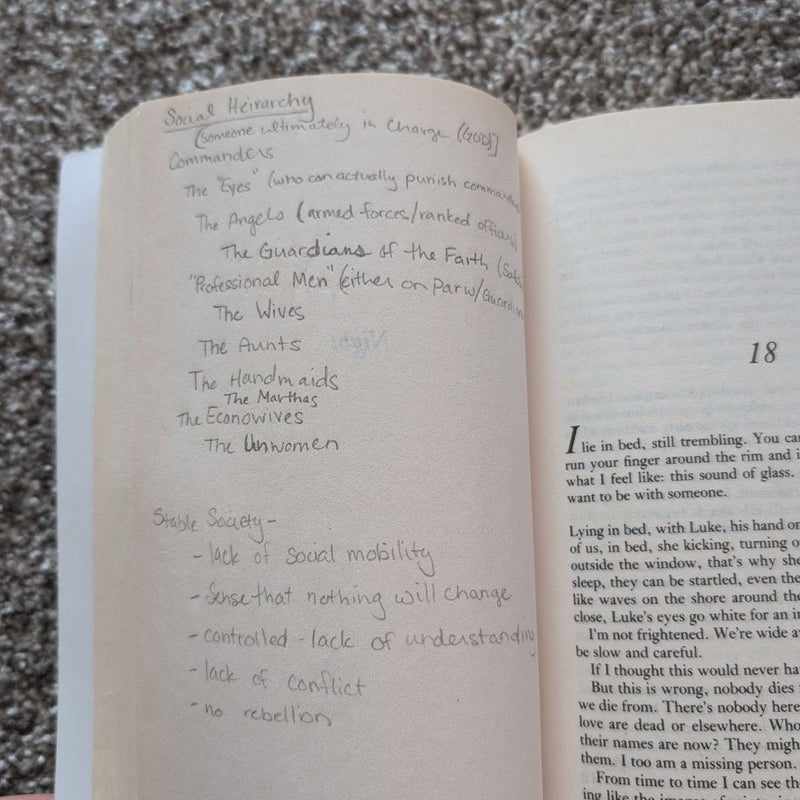 Social Heirarchy
(someone ultimately in charge (GOD)]
Commanders
The "Eyes" (who can actually punish
The Angels (armed forces/ranked
The Guardians of the Faith
"Professional Men" (either on par w/
The Wives
The Aunts
The Handmaids
The Marthas
The Econowives
The Unwomen
Stable Society-
- lack of social mobility
- Sense that nothing will change
- controlled - lack of understanding
- lack of conflict
- no rebellion
Night
18
I lie in bed, still trembling. You
run your finger around the rim and
what I feel like: this sound of glass.
want to be with someone.
Lying in bed, with Luke, his hand
of us, in bed, she kicking, turning
outside the window, that's why
sleep, they can be startled, even
like waves on the shore around
close, Luke's eyes go white for an
I'm not frightened. We're wide
be slow and careful.
If I thought this would never
But this is wrong, nobody dies
we die from. There's nobody here
love are dead or elsewhere.
their names are now? They
them. I too am a missing person.
From time to time I can see
ing like the images of